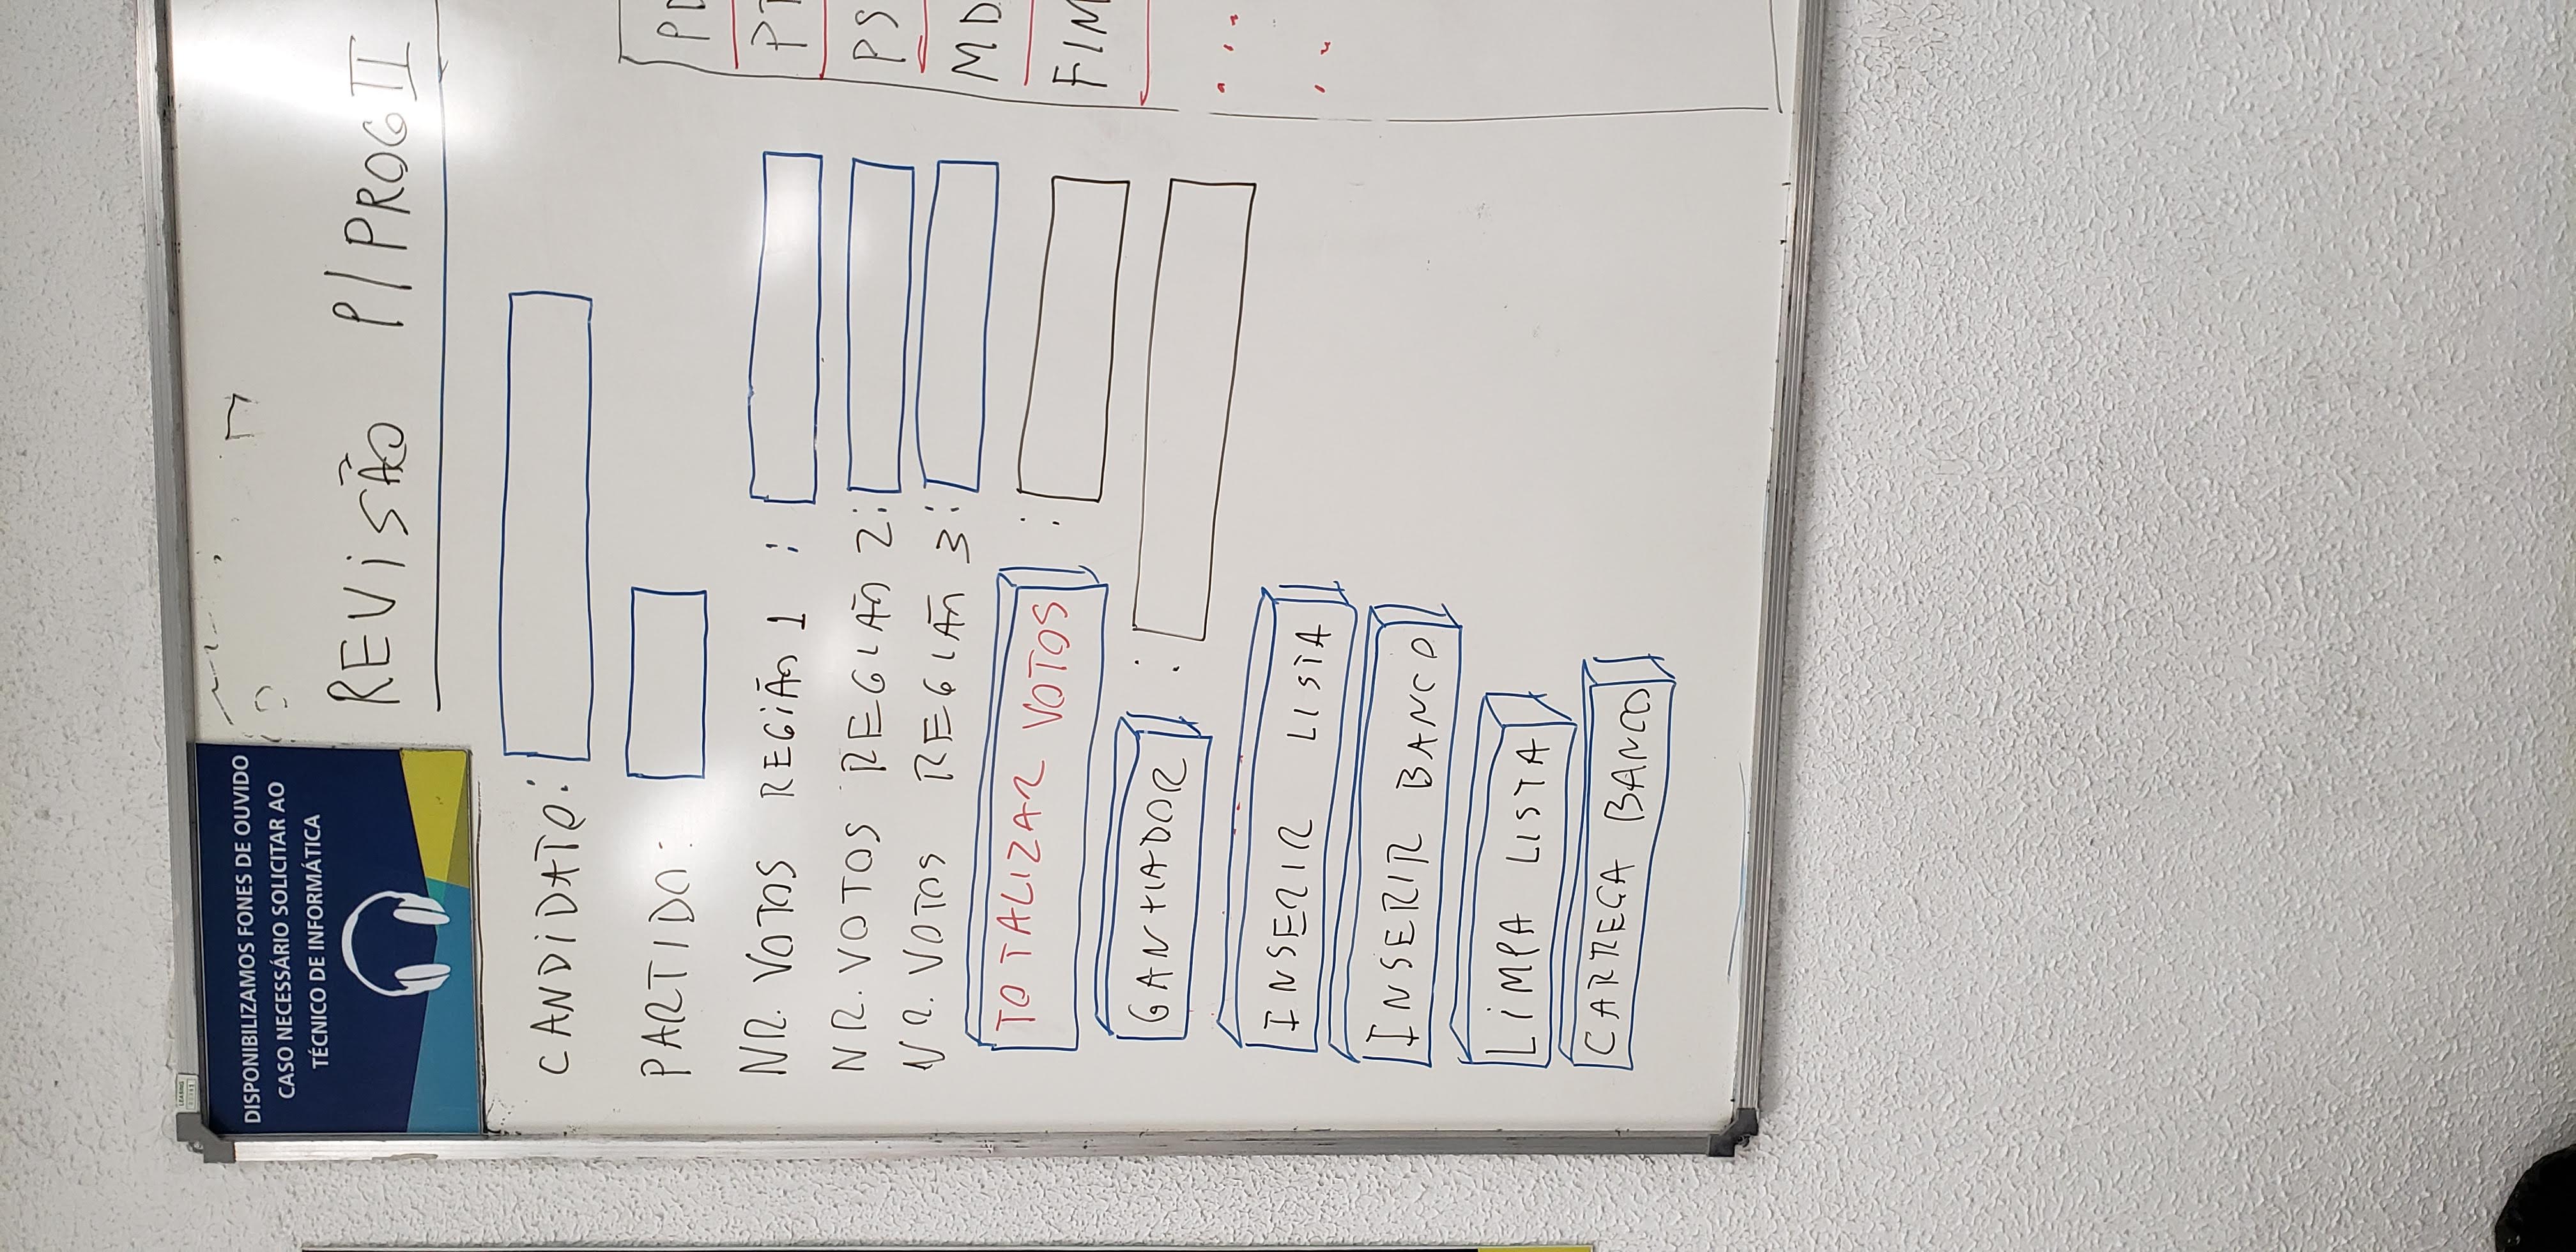 LEASING
DISPONIBILIZAMOS FONES DE OUVIDO
CASO NECESSÁRIO SOLICITAR AO
TÉCNICO DE INFORMÁTICA
REVISÃO P/PROG II
CANDIDATO:
PARTIDO:
NR. VOTOS REGIÃO 1 :
NR. VOTOS REGIÃO 2:
NR. VOTOS REGIÃO 3:
TOTALIZAR VOTOS :
GANHADOR :
INSERIR LISTA
INSERIR BANCO
LIMPA LISTA
CARREGA BANCO
PD
PT
PS
MD
FIM